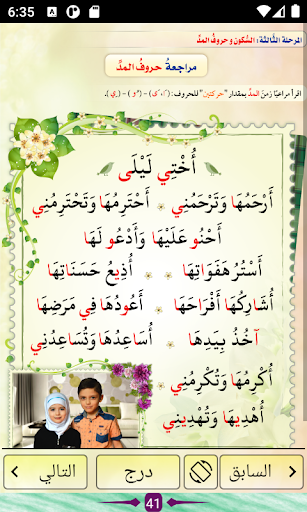 6:35
المرحلة الثالثة : السُّكون و حروفُ المدِّ
مراجعةُ حروفُ المدِّ
اقرأ مراعيًا زمنَ المدِّ بمقدار "حركتين" للحروف :
أُخْتِي لَيْلَى
أَرْحَمُهَا وَتَرْحَمُنِي أَحْتَرِمُهَا وَتَحْتَرِمُنِي
أَحْنُو عَلَيْهَا وَأَدْعُو لَهَا
أَسْتُرُ هَفَوَاتِهَا أُذِيعُ حَسَنَاتِهَا
أُشَارِكُهَا أَفْرَاحَهَا أَعُودُهَا فِي مَرَضِهَا
آخُذُ بِيَدِهَا أُسَاعِدُهَا وَتُسَاعِدُنِي
أُكْرِمُهَا وَتُكْرِمُنِي
أُهْدِيهَا وَتُهْدِينِي
السابق درج التالي
41